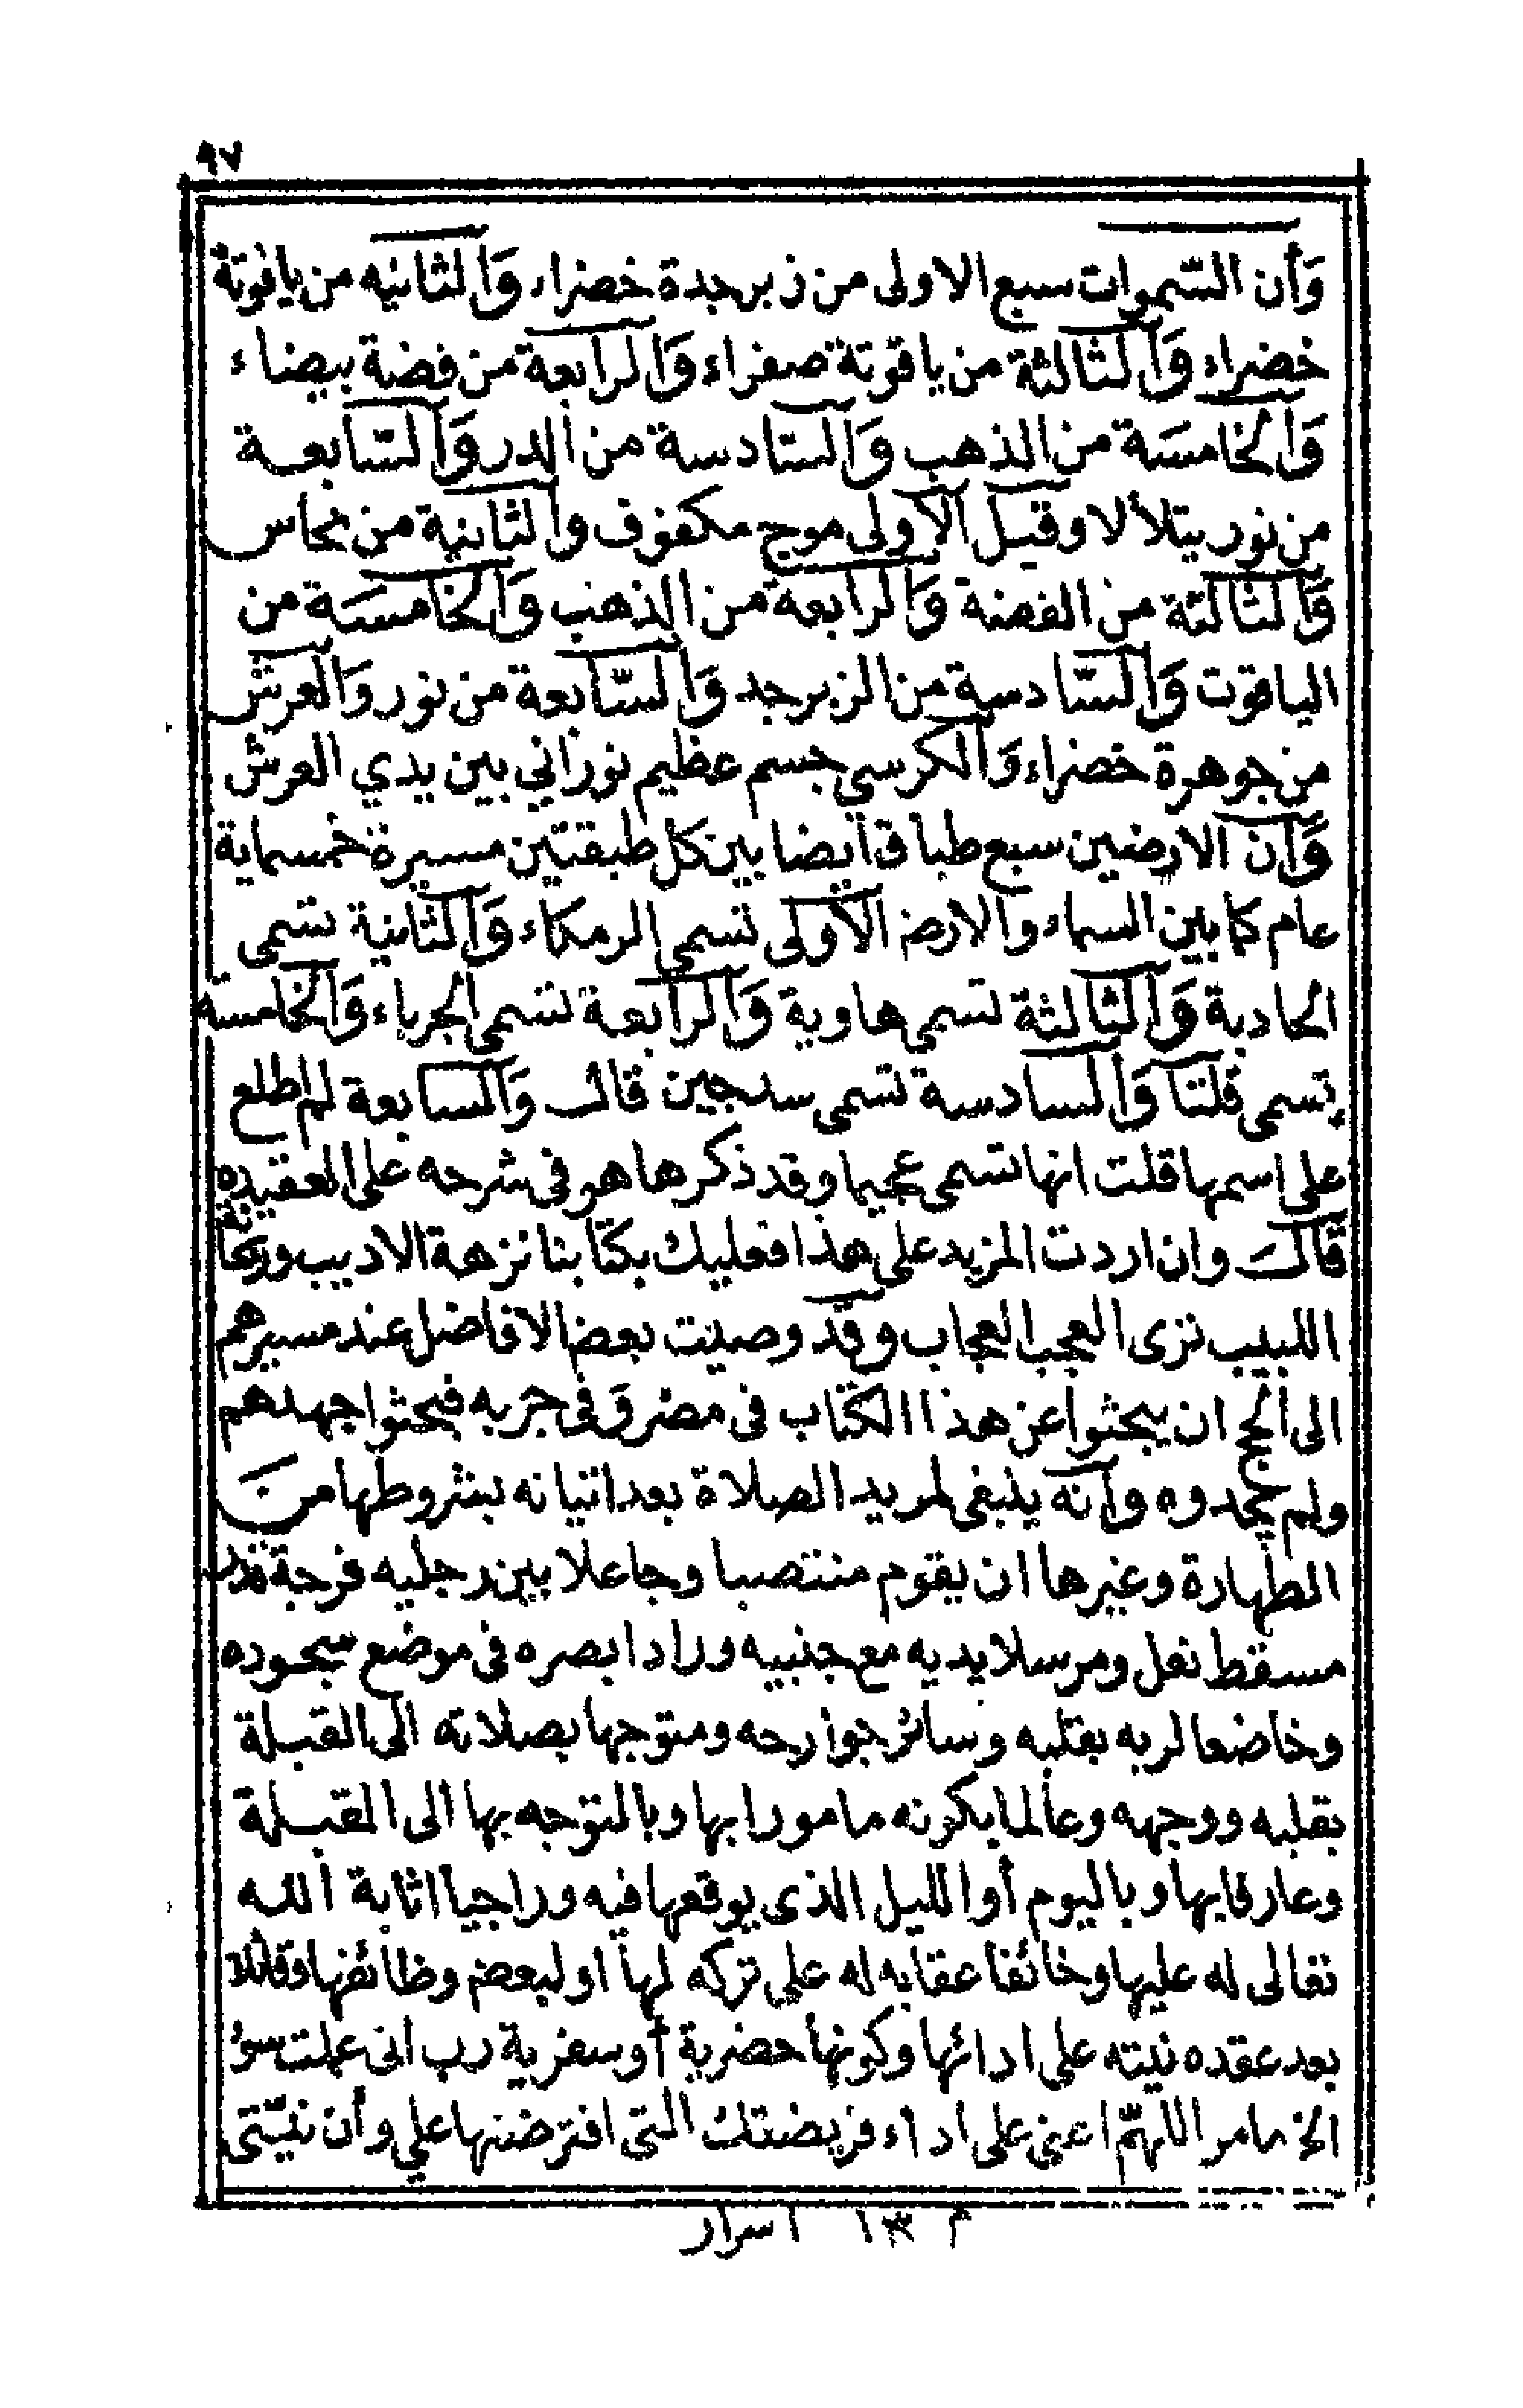 ٩٧
وَأن السّموات سبع الاولى من زبرجدة خضراء وَالثانيه من ياقوتة
خضراء وَالثالثة من ياقوتة صفراء وَالرابعة من فضة بيضاء
وَالخامسَة من الذهب وَالسّادسة من الدر وَالسّابعة
من نور يتلألا وقيل الاولى موج مكفوف والثانية من نحاس
وَالثالثة من الفضة وَالرابعة من الذهب وَالخامسَة من
الياقوت وَالسّادسة من الزبرجد وَالسّابعة من نور وَالعرش
من جوهرة خضراء وَالكرسي جسم عظيم نوراني بين يدي العرش
وَأن الارضين سبع طباق أيضا بين كل طبقتين مسيرة خمسماية
عام كما بين السماء والارض الاولى تسمى الرمكاء وَالثانية تسمى
الحادبة وَالثالثة تسمى هاوية وَالرابعة تسمى الجرباء وَالخامسة
تسمى قلتا وَالسادسة تسمى سدجين قال وَالسابعة لم اطلع
على اسمها قلت انها تسمى عجيبا وقد ذكرها هو في شرحه على العقيده
قال وان اردت المزيد على هذا فعليك بكتابنا نزهة الاديب وريحانة
اللبيب ترى العجب العجاب وقد وصيت بعض الافاضل عند مسيرهم
الى الحج ان يبحثوا عن هذا الكتاب فى مصر وَفى جربه فبحثوا جهدهم
ولم يجدوه وأنه ينبغى لمريد الصلاة بعد اتيانه بشروطها من
الطهارة وغيرها ان يقوم منتصبا وجاعلا بين رجليه فرجة قدر
مسقط نعل ومرسلا يديه مع جنبيه ورادا بصره فى موضع سجوده
وخاضعا لربه بقلبه وسائر جوارحه ومتوجها بصلاته الى القبلة
بقلبه ووجهه وعالما بكونه مامورا بها وبالتوجه بها الى القبلة
وعارفا بها وباليوم أو الليل الذى يوقعها فيه وراجيا اثابة الله
تعالى له عليها وخائفا عقابه له على تركه لها او لبعض وظائفها وقائلا
بعد عقده نيته على ادائها وكونها حضرية أو سفرية رب انى عملت سوء
الخ مامر اللهمّ اعنى على اداء فريضتك التى افترضتها علي وأن نيّتى
م ١٣ اسرار